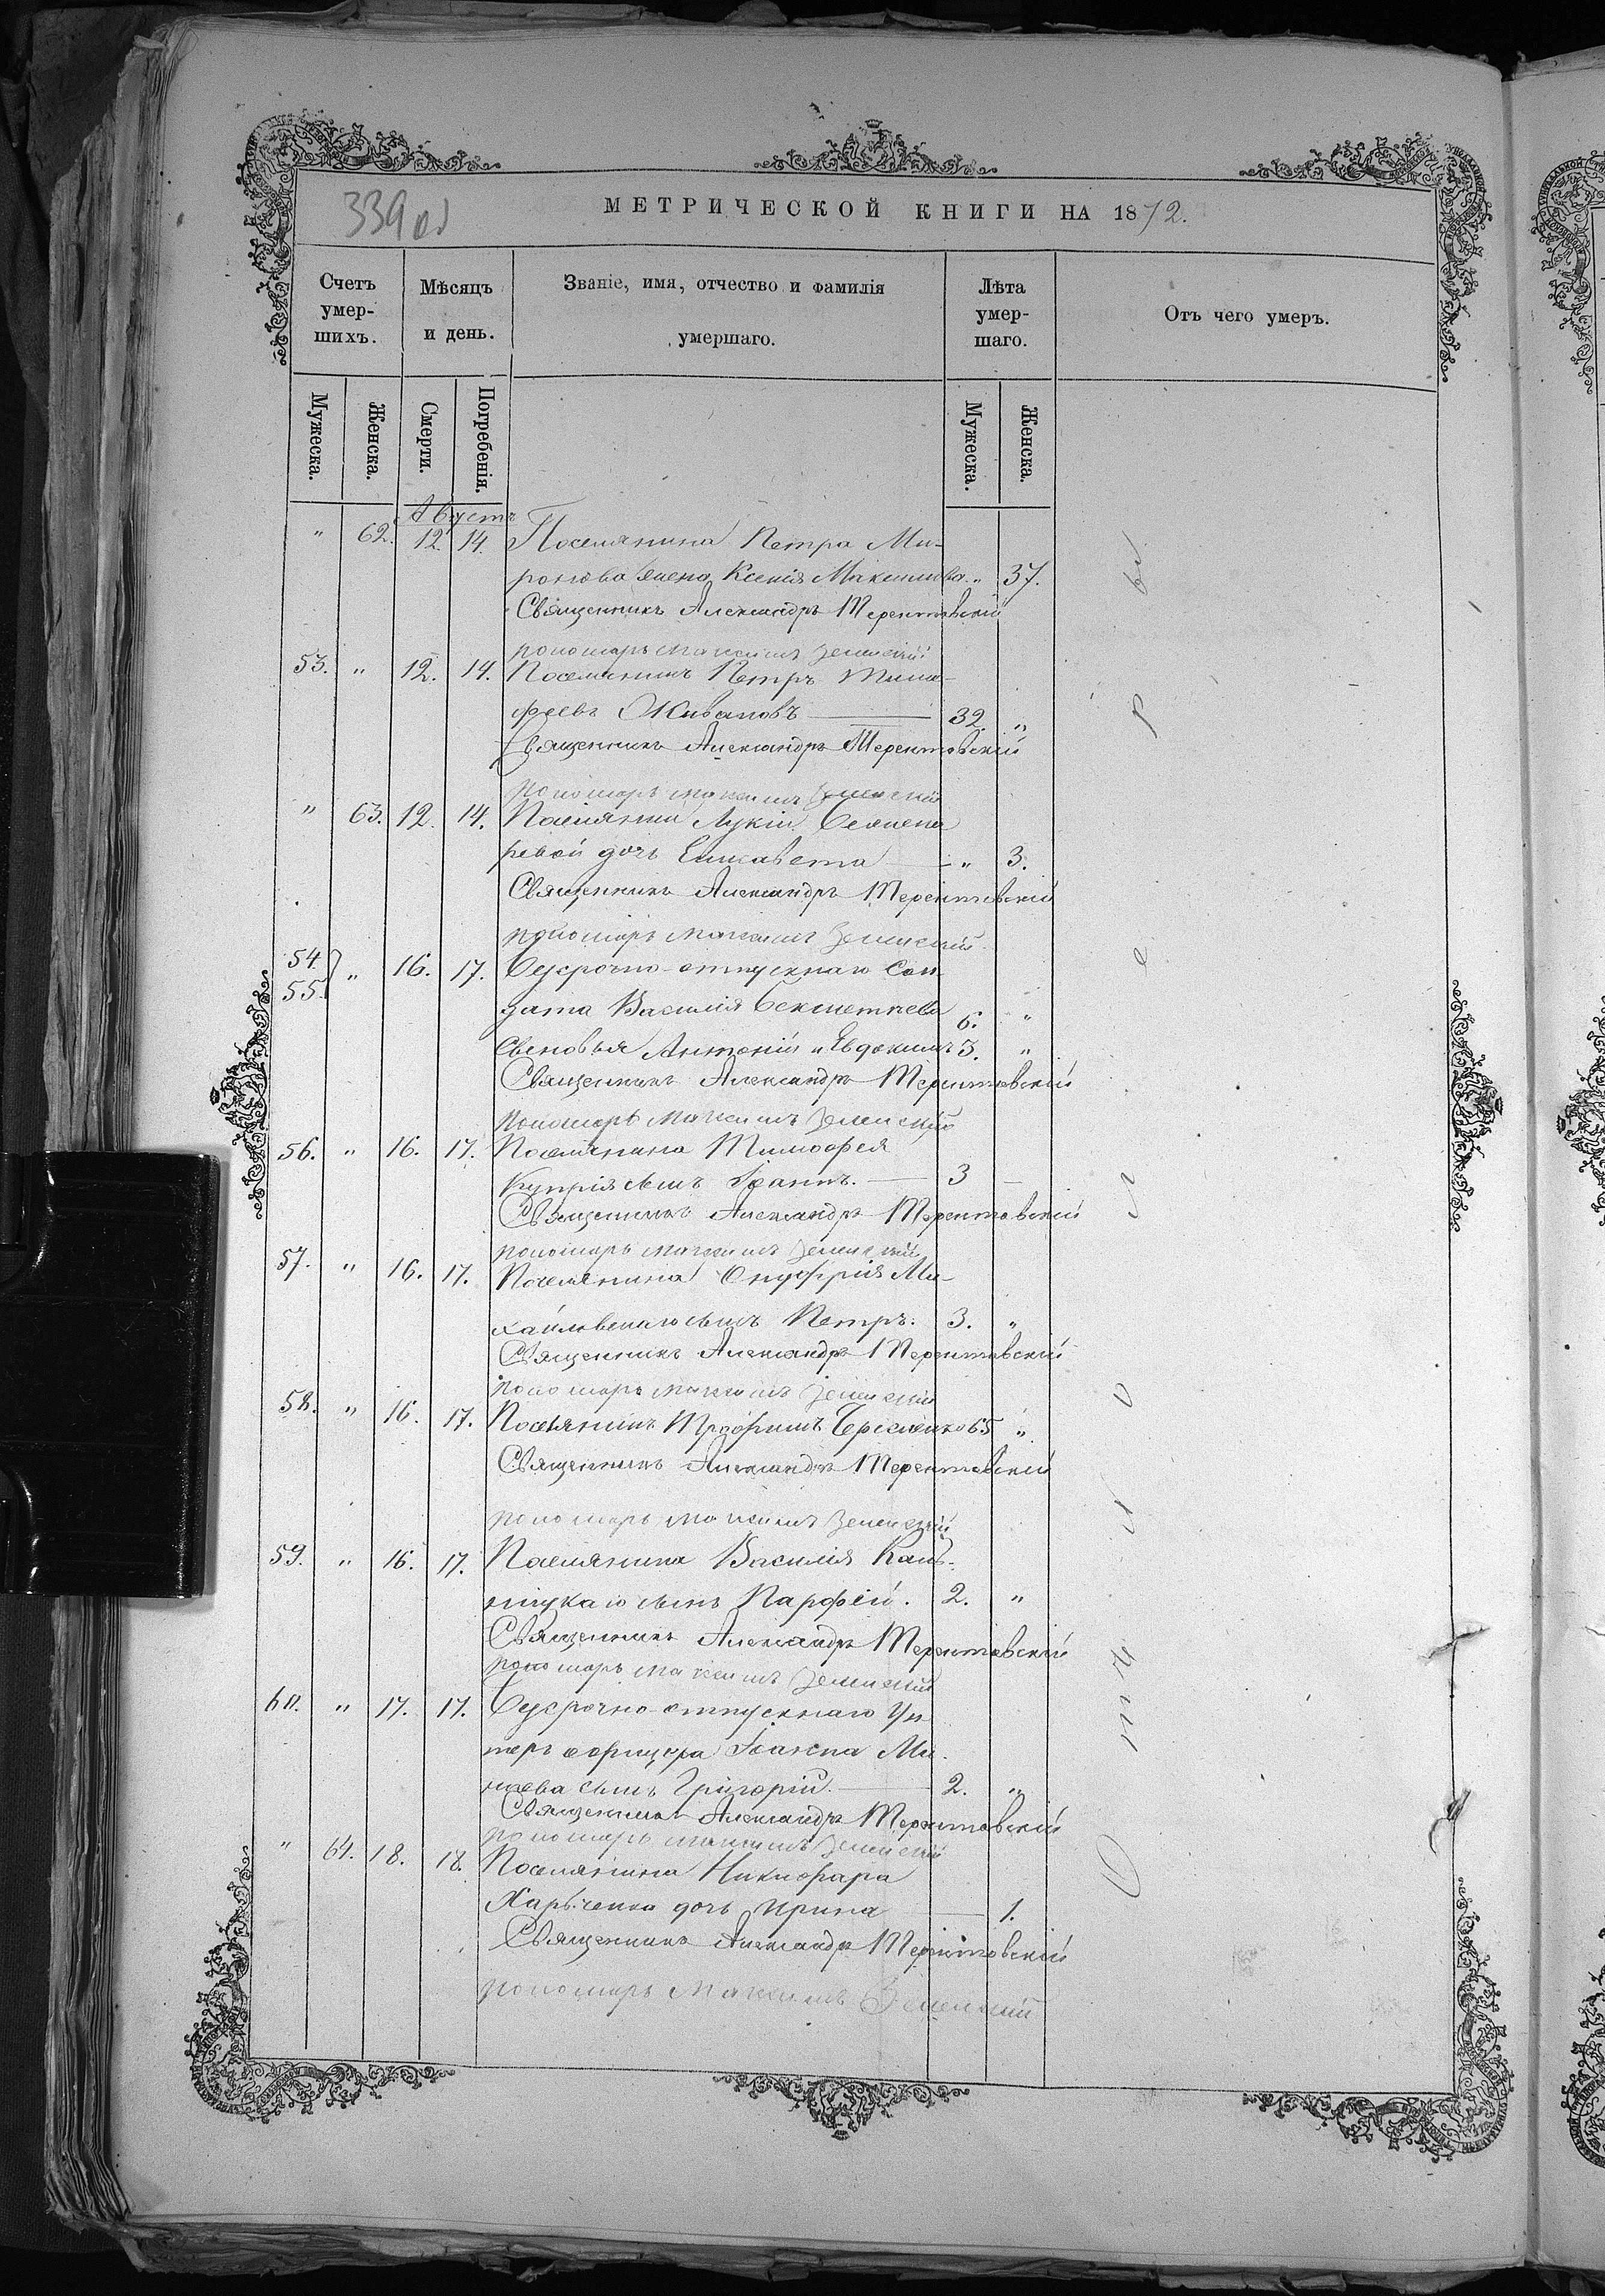 339 об
МЕТРИЧЕСКОЙ КНИГИ НА 1872.
Счетъ умершихъ.
Мѣсяцъ и день.
Званіе, имя, отчество и фамилія умершаго.
Лѣта умершаго.
Отъ чего умеръ.
Мужеска.
Женска.
Смерти.
Погребенія.
Мужеска.
Женска.
Августъ
" 62. 12. 14. Поселянина Петра Ми-
ронова жена Ксенія Максимова. " 37.
Священникъ Александръ Терентовскій
пономарь Максимъ Зелинскій
53. " 12. 14. Поселянинъ Петръ Тимо-
феевъ Живановъ 32 "
Священникъ Александръ Терентовскій
пономарь Максимъ Зелинскій
" 63. 12. 14. Поселянки Лукіи
ревой дочь Елисавета " 3.
Священникъ Александръ Терентовскій
пономарь Максимъ Зелинскій
54. 55. " 16. 17. Безсрочно-отпускнаго Сол-
дата Василія
Сыновья Антоній и Евдокимъ 6. 3. "
Священникъ Александръ Терентовскій
пономарь Максимъ Зелинскій
56. " 16. 17. Поселянина Тимофея
Купрія сынъ Іоаннъ. 3
Священникъ Александръ Терентовскій
пономарь Максимъ Зелинскій
57. " 16. 17. Поселянина Онуфрія Ми-
хайловскаго сынъ Петръ. 3. "
Священникъ Александръ Терентовскій
пономарь Максимъ Зелинскій
58. " 16. 17. Поселянинъ Трофимъ 65 "
Священникъ Александръ Терентовскій
пономарь Максимъ Зелинскій
59. " 16. 17. Поселянина Василія
сынъ Парфеній. 2. "
Священникъ Александръ Терентовскій
пономарь Максимъ Зелинскій
60. " 17. 17. Безсрочно-отпускнаго Ун-
теръ офицера Іоанна Ми-
наева сынъ Григорій. 2. "
Священникъ Александръ Терентовскій
пономарь Максимъ Зелинскій
" 64. 18. 18. Поселянина Никифара
Харьченка дочь Ирина 1.
Священникъ Александръ Терентовскій
пономарь Максимъ Зелинскій
Отъ холеры